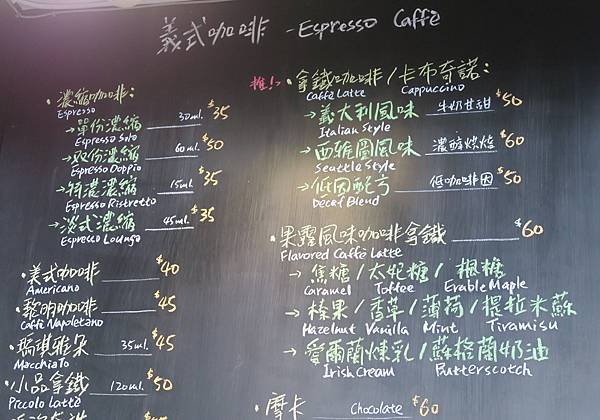 義式咖啡 - Espresso Caffè
・濃縮咖啡:
Espresso
→單份濃縮 30ml. $35
Espresso Solo
→双份濃縮 60ml. $50
Espresso Doppio
→特濃濃縮 15ml. $35
Espresso Ristretto
→淡式濃縮 45ml. $35
Espresso Lounge
・美式咖啡 $40
Americano
・黎明咖啡 $45
Caffè Napoletano
・瑪琪雅朵 35ml. $45
Macchiato
・小品拿鐵 120ml. $50
Piccolo Latte
推!→ ・拿鐵咖啡/卡布奇諾:
Caffè Latte Cappuccino
→義大利風味 牛奶甘甜 $50
Italian Style
→西雅圖風味 濃醇烘焙 $60
Seattle Style
→低因配方 低咖啡因 $50
Decaf Blend
・果露風味咖啡拿鐵 $60
Flavored Caffè Latte
→ 焦糖/太妃糖/楓糖
Caramel Toffee Erable Maple
→ 榛果/香草/薄荷/提拉米蘇
Hazelnut Vanilla Mint Tiramisu
→ 愛爾蘭煉乳/蘇格蘭奶油
Irish Cream Butterscotch
・摩卡 Chocolate $60